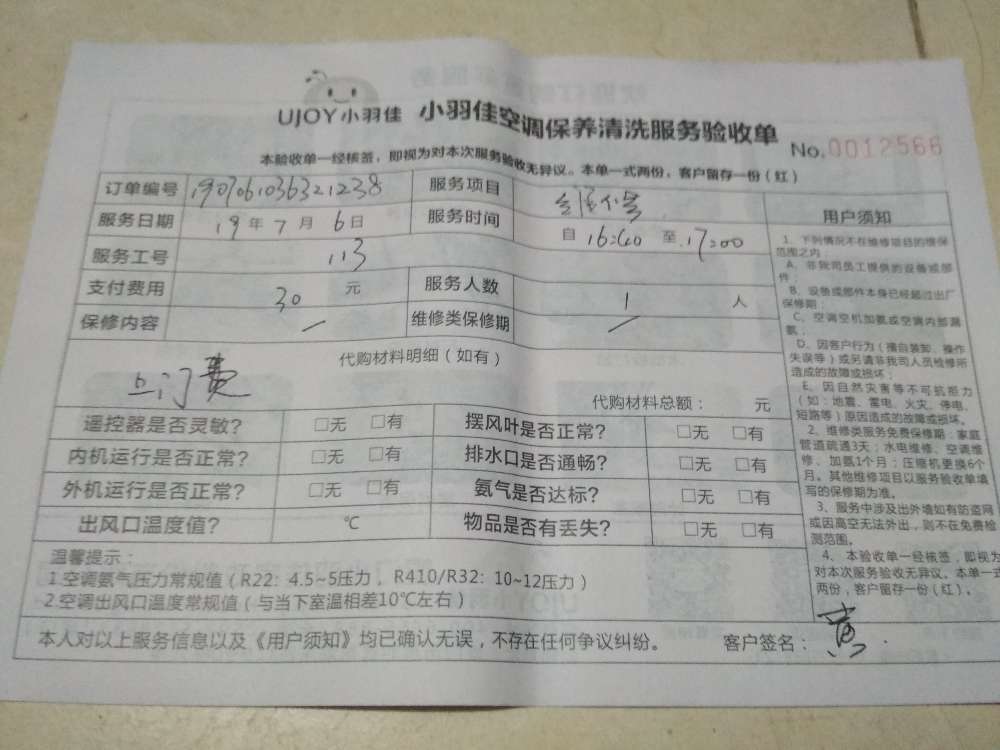 UJOY小羽佳 小羽佳空调保养清洗服务验收单
No.0012566
本验收单一经核签，即视为对本次服务验收无异议。本单一式两份，客户留存一份（红）
订单编号 1907061036321238 服务项目
服务日期 19年7月6日 服务时间 自 16:40 至 17:00
服务工号 113
支付费用 30 元 服务人数 1 人
保修内容 / 维修类保修期 /
代购材料明细（如有）
上门费
代购材料总额： 元
遥控器是否灵敏？ □无 □有 摆风叶是否正常？ □无 □有
内机运行是否正常？ □无 □有 排水口是否通畅？ □无 □有
外机运行是否正常？ □无 □有 氨气是否达标？ □无 □有
出风口温度值？ ℃ 物品是否有丢失？ □无 □有
温馨提示：
1.空调氨气压力常规值（R22：4.5~5压力，R410/R32：10~12压力）
2.空调出风口温度常规值（与当下室温相差10℃左右）
本人对以上服务信息以及《用户须知》均已确认无误，不存在任何争议纠纷。 客户签名：黄
用户须知
1、下列情况不在维修项目的维保
范围之内：
A、非我司员工提供的设备或部
件；
B、设备或部件本身已经超过出厂
保修期；
C、空调空机加氨或空调内部漏
氨；
D、因客户行为（擅自装卸、操作
失误等）或另请非我司人员检修所
造成的故障或损坏；
E、因自然灾害等不可抗拒力
（如：地震、雷电、火灾、停电、
短路等）原因造成的故障或损坏。
2、维修类服务免费保修期：家庭
管道疏通3天；水电维修、空调维
修、加氨1个月；压缩机更换6个
月。其他维修项目以服务验收单填
写的保修期为准。
3、服务中涉及出外墙如有防盗网
或因高空无法外出，则不在免费检
测范围。
4、本验收单一经核签，即视为
对本次服务验收无异议。本单一式
两份，客户留存一份（红）。